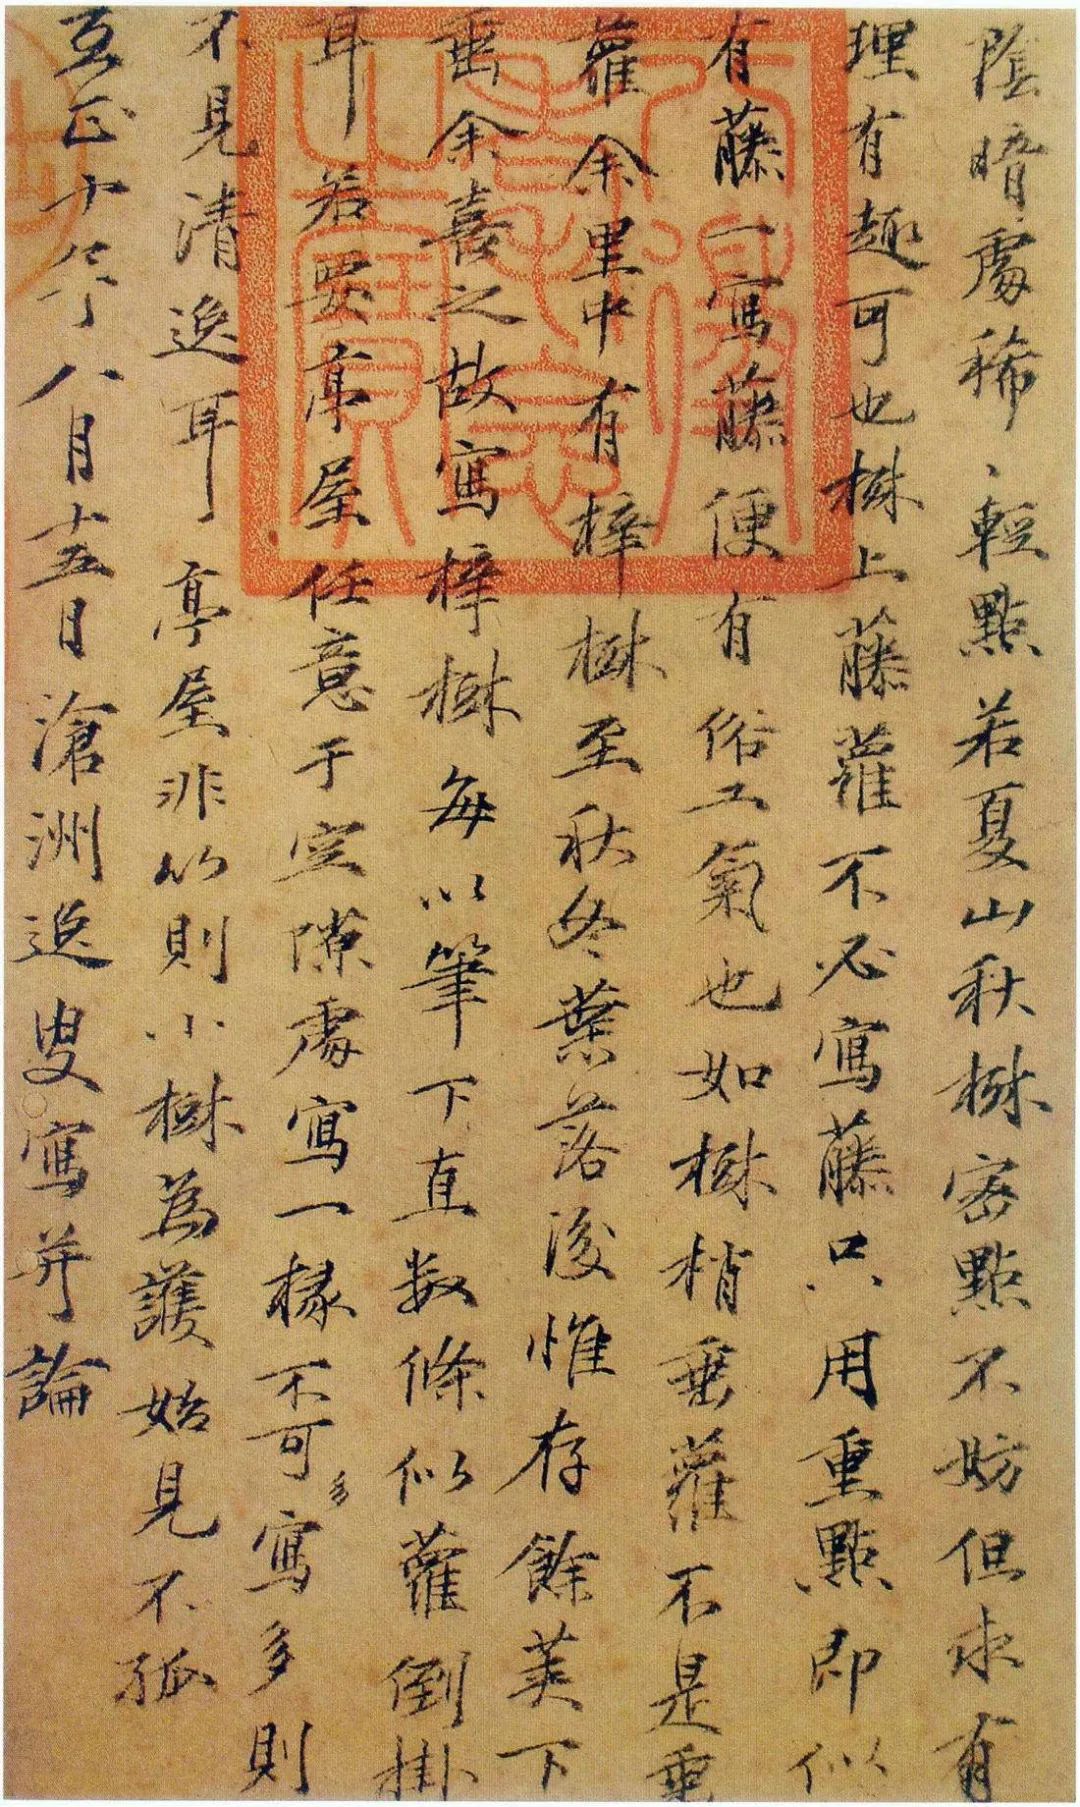 陰暗處稀、輕點若夏山秋樹密點不妨但求有
理有趣可也樹上藤蘿不必寫藤只用重點即似
有藤一寫藤便有俗工氣也如樹梢垂蘿不是垂
蘿余里中有梓樹至秋冬葉落後惟存餘荚下
垂余喜之故寫梓樹每以筆下直数條似蘿倒掛
耳若要亭屋任意于空隙處寫一椽不可多寫多則
不見清逸耳亭屋非竹則小樹為護始見不孤
至正十年八月十五日滄洲逸叟寫并論